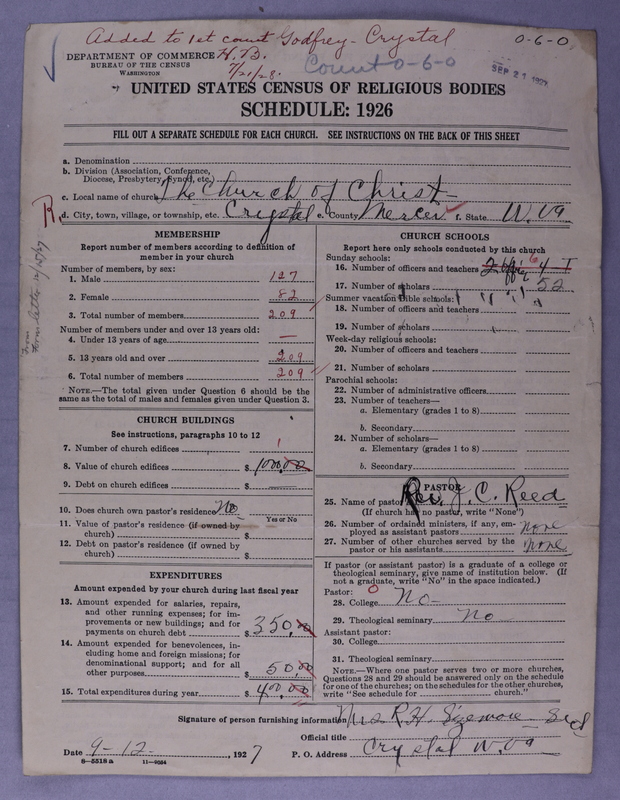 Added to 1st count Godfrey - Crystal
0-6-0
DEPARTMENT OF COMMERCE H.B.
BUREAU OF THE CENSUS
WASHINGTON
7/21/28.
Count 0-6-0
SEP 21 1927
UNITED STATES CENSUS OF RELIGIOUS BODIES
SCHEDULE: 1926
FILL OUT A SEPARATE SCHEDULE FOR EACH CHURCH. SEE INSTRUCTIONS ON THE BACK OF THIS SHEET
a. Denomination
b. Division (Association, Conference,
Diocese, Presbytery, Synod, etc.)
c. Local name of church The Church of Christ
R. d. City, town, village, or township, etc. Crystal e. County Mercer f. State W. Va
From
form letter 10/25/27
MEMBERSHIP
Report number of members according to definition of
member in your church
Number of members, by sex:
1. Male 127
2. Female 82
3. Total number of members 209
Number of members under and over 13 years old:
4. Under 13 years of age —
5. 13 years old and over 209
6. Total number of members 209
NOTE.—The total given under Question 6 should be the
same as the total of males and females given under Question 3.
CHURCH BUILDINGS
See instructions, paragraphs 10 to 12
7. Number of church edifices 1
8. Value of church edifices $ 1000.00
9. Debt on church edifices $
10. Does church own pastor's residence? No
Yes or No
11. Value of pastor's residence (if owned by
church) $
12. Debt on pastor's residence (if owned by
church) $
EXPENDITURES
Amount expended by your church during last fiscal year
13. Amount expended for salaries, repairs,
and other running expenses; for im-
provements or new buildings; and for
payments on church debt $ 350.00
14. Amount expended for benevolences, in-
cluding home and foreign missions; for
denominational support; and for all
other purposes $ 50.00
15. Total expenditures during year $ 400.00
CHURCH SCHOOLS
Report here only schools conducted by this church
Sunday schools:
16. Number of officers and teachers 2 offic 6 4 T
17. Number of scholars 52
Summer vacation Bible schools:
18. Number of officers and teachers
19. Number of scholars
Week-day religious schools:
20. Number of officers and teachers
21. Number of scholars
Parochial schools:
22. Number of administrative officers
23. Number of teachers—
a. Elementary (grades 1 to 8)
b. Secondary
24. Number of scholars—
a. Elementary (grades 1 to 8)
b. Secondary
PASTOR
25. Name of pastor Rev. J. C. Reed
(If church had no pastor, write "None")
26. Number of ordained ministers, if any, em-
ployed as assistant pastors none
27. Number of other churches served by the
pastor or his assistants none
If pastor (or assistant pastor) is a graduate of a college or
theological seminary, give name of institution below. (If
not a graduate, write "No" in the space indicated.)
Pastor: 0
28. College No
29. Theological seminary No
Assistant pastor:
30. College
31. Theological seminary
NOTE.—Where one pastor serves two or more churches,
Questions 28 and 29 should be answered only on the schedule
for one of the churches; on the schedules for the other churches,
write "See schedule for church."
Signature of person furnishing information Mrs R. H. Sizemore Sec
Official title
Date 9-12, 1927 P. O. Address Crystal W. Va
8-5518a 11-9034